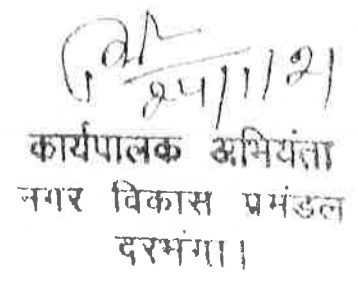 कार्यपालक अभियंता
नगर विकास प्रमंडल
दरभंगा।